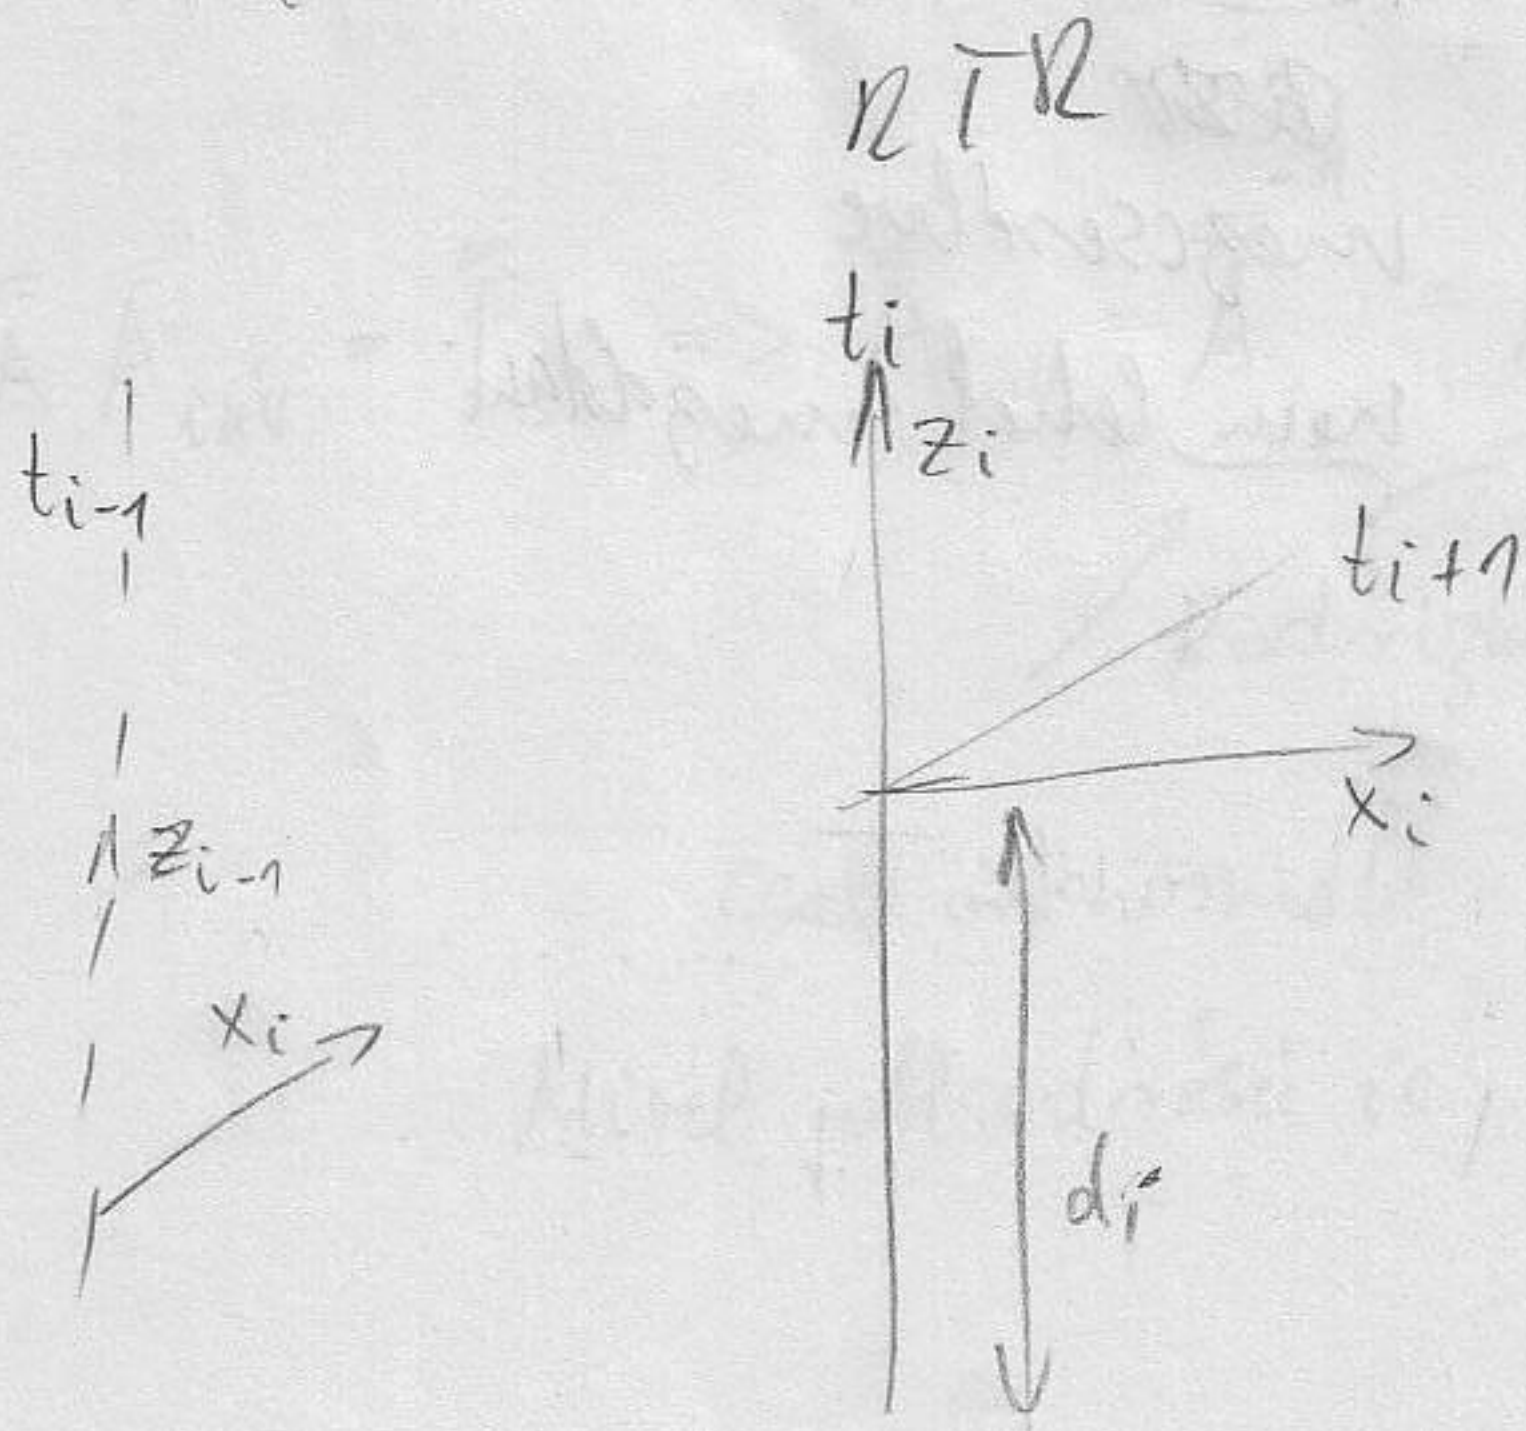 R T R
t_i
z_i
t_{i-1}
t_{i+1}
x_i
z_{i-1}
x_i
d_i